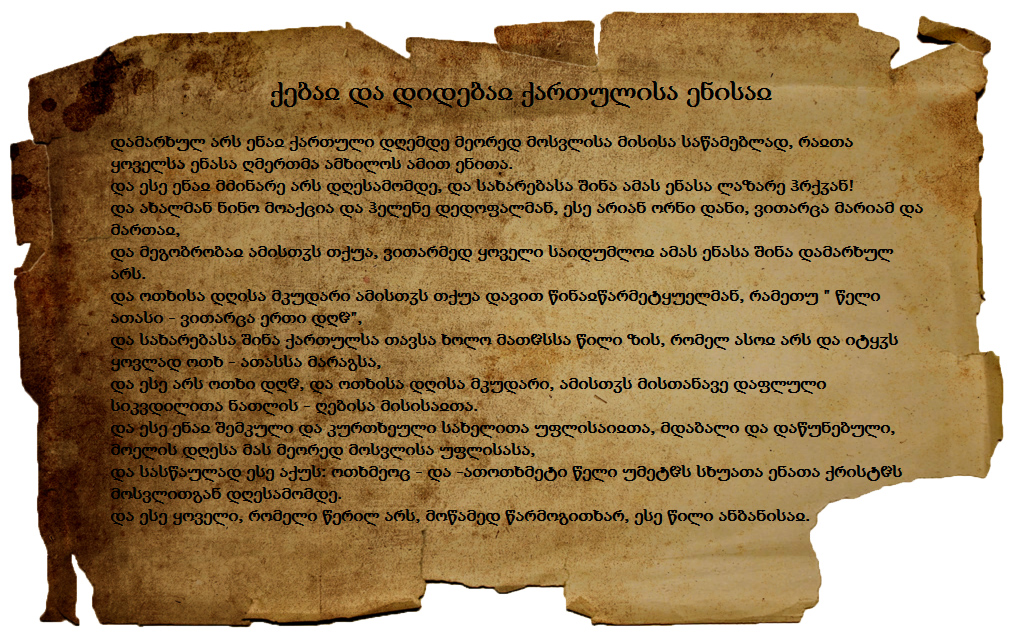 ქებაჲ და დიდებაჲ ქართულისა ენისაჲ
დამარხულ არს ენაჲ ქართული დღემდე მეორედ მოსვლისა მისისა საწამებლად, რაჲთა
ყოველსა ენასა ღმერთმა ამხილოს ამით ენითა.
და ესე ენაჲ მძინარე არს დღესამომდე, და სახარებასა შინა ამას ენასა ლაზარე ჰრქჳან!
და ახალმან ნინო მოაქცია და ჰელენე დედოფალმან, ესე არიან ორნი დანი, ვითარცა მარიამ და
მართაჲ,
და მეგობრობაჲ ამისთჳს თქუა, ვითარმედ ყოველი საიდუმლოჲ ამას ენასა შინა დამარხულ
არს.
და ოთხისა დღისა მკუდარი ამისთჳს თქუა დავით წინაჲწარმეტყუელმან, რამეთუ " წელი
ათასი - ვითარცა ერთი დღჱ",
და სახარებასა შინა ქართულსა თავსა ხოლო მათჱსსა წილი ზის, რომელ ასოჲ არს და იტყჳს
ყოვლად ოთხ - ათასსა მარაგსა,
და ესე არს ოთხი დღჱ, და ოთხისა დღისა მკუდარი, ამისთჳს მისთანავე დაფლული
სიკვდილითა ნათლის - ღებისა მისისაჲთა.
და ესე ენაჲ შემკული და კურთხეული სახელითა უფლისაიჲთა, მდაბალი და დაწუნებული,
მოელის დღესა მას მეორედ მოსვლისა უფლისასა,
და სასწაულად ესე აქუს: ოთხმეოც - და -ათოთხმეტი წელი უმეტჱს სხუათა ენათა ქრისტჱს
მოსვლითგან დღესამომდე.
და ესე ყოველი, რომელი წერილ არს, მოწამედ წარმოგითხარ, ესე წილი ანბანისაჲ.